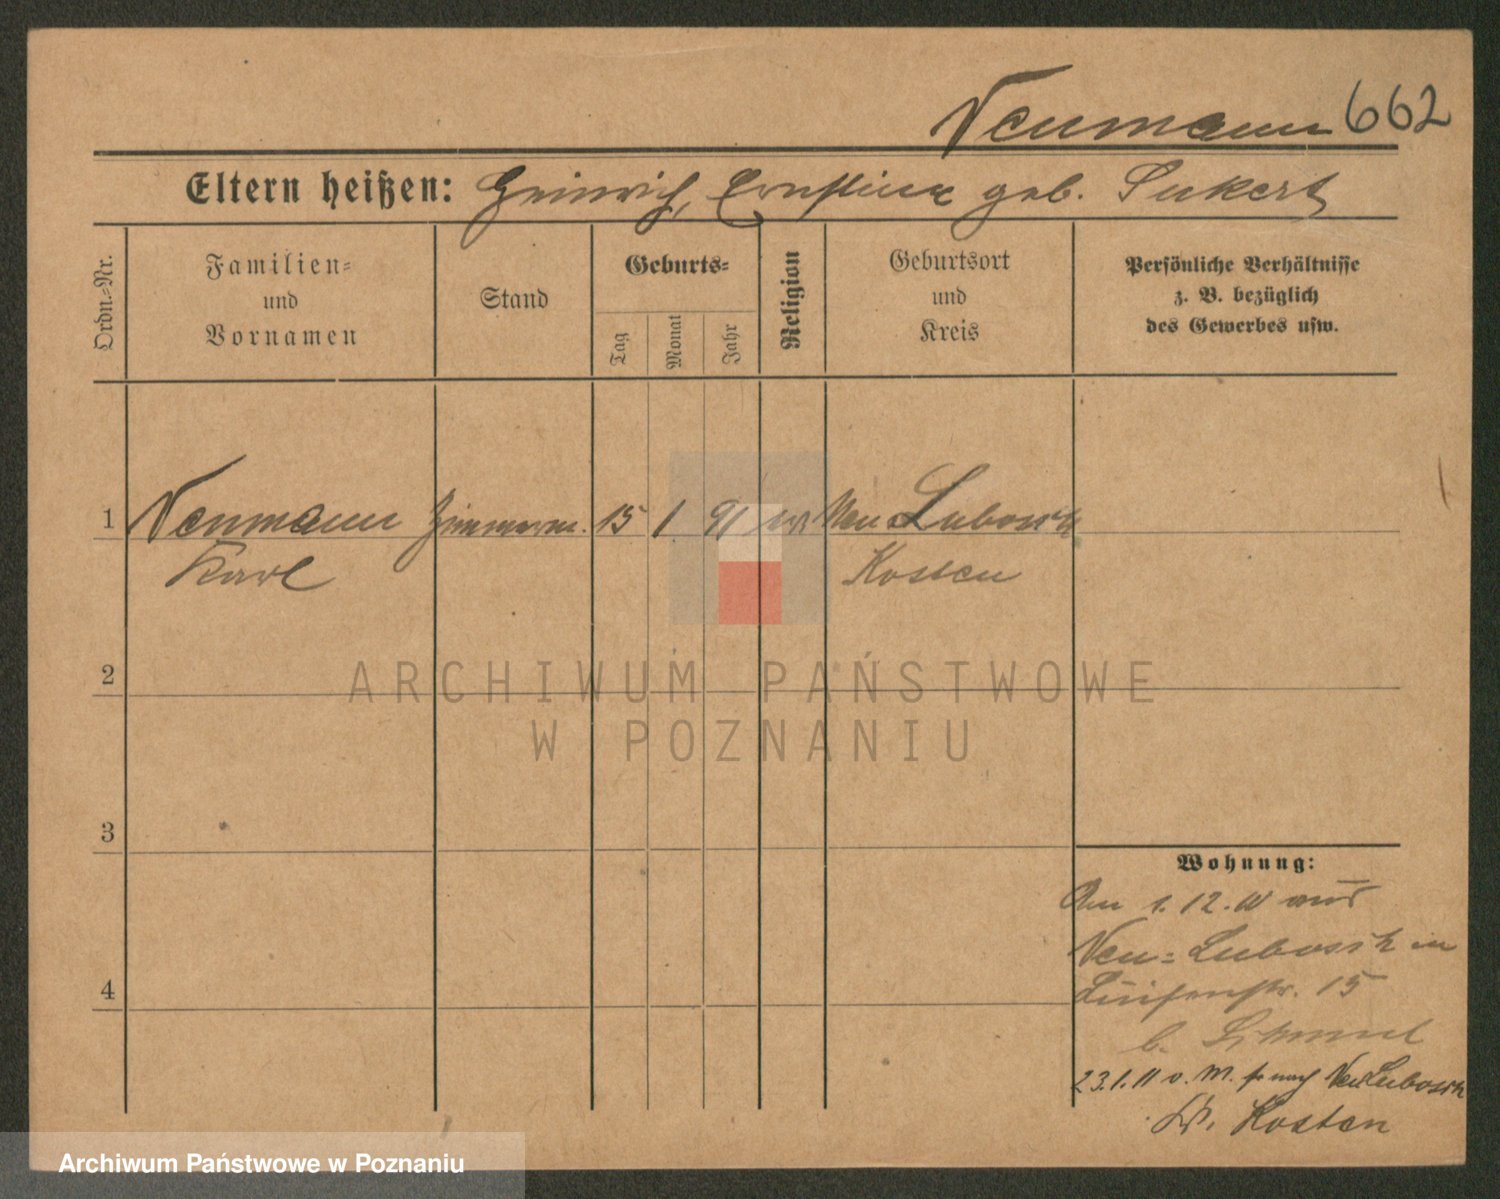 Neumann 662
Eltern heißen: Heinrich, Ernstine geb. Sukert
Ordn.-Nr.
Familien-
und
Vornamen
Stand
Geburts-
Tag
Monat
Jahr
Religion
Geburtsort
und
Kreis
Persönliche Verhältnisse
z. B. bezüglich
des Gewerbes usw.
1 Neumann Zimmerm. 15 1 91 Neu Lubosch
Karl Kosten
2
3
4
Wohnung:
Am 1. 12. 10 aus
Neu-Lubosch in
Luisenstr. 15
b.
23.1.11 v. M. fr nach Neu Lubosch
Kr. Kosten
ARCHIWUM PAŃSTWOWE
W POZNANIU
Archiwum Państwowe w Poznaniu